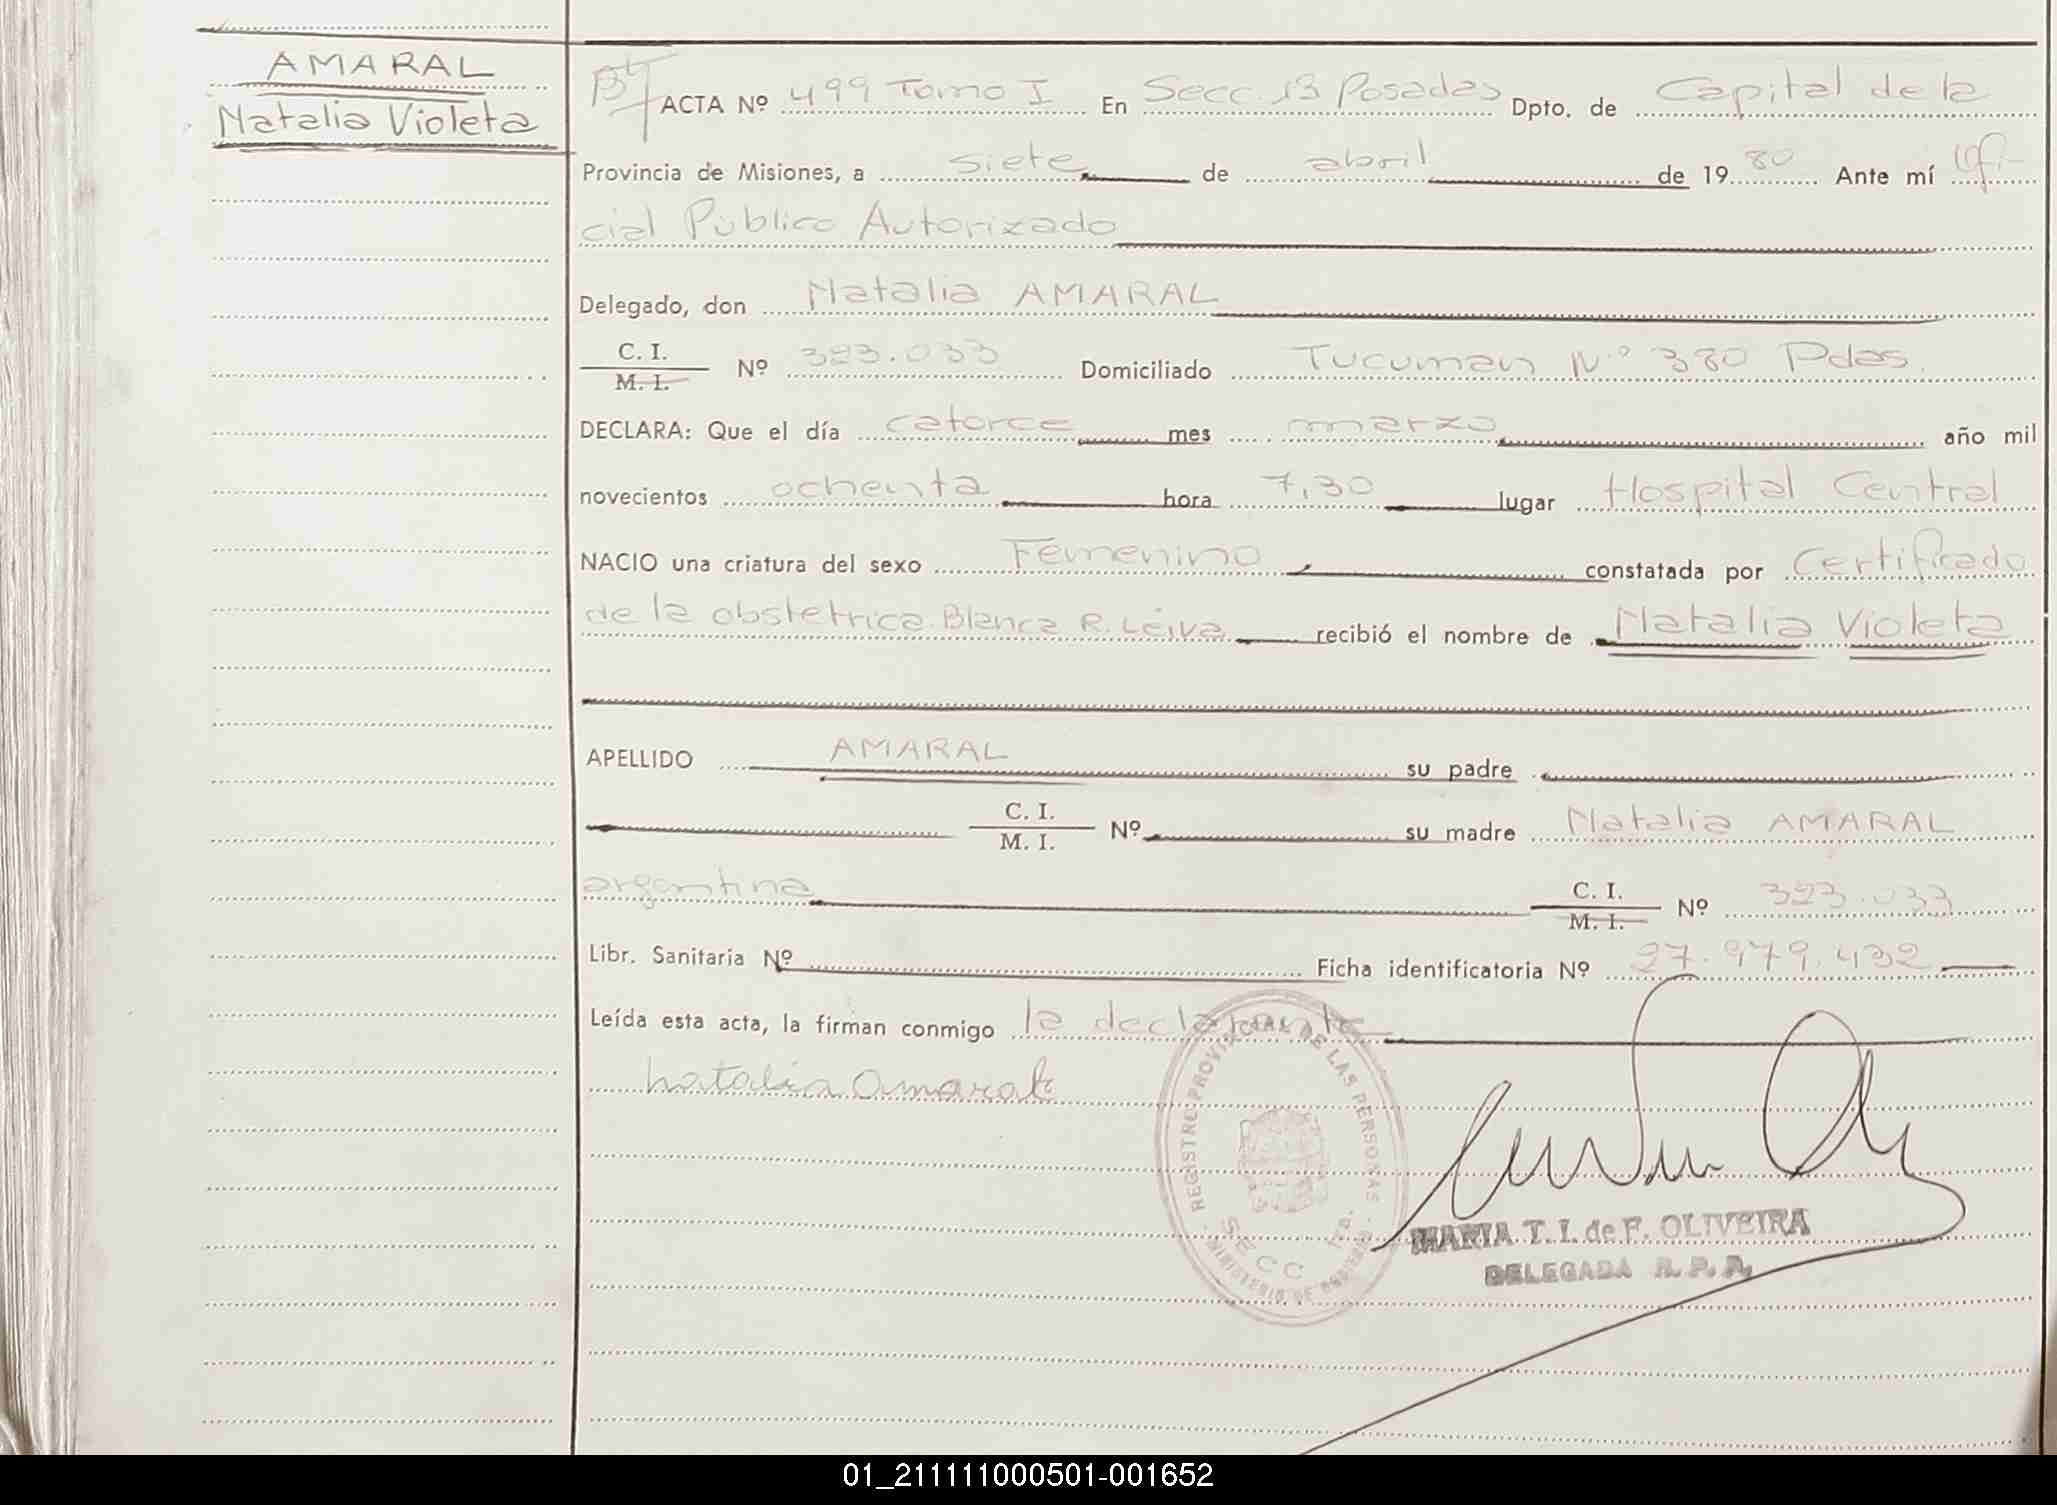 AMARAL
Natalia Violeta
ACTA Nº 499 Tomo I En Secc. 13 Posadas Dpto. de Capital de la
Provincia de Misiones, a siete de abril de 1980 Ante mí Ofi-
cial Público Autorizado
Delegado, don Natalia AMARAL
C. I.
M. I. Nº 323.033 Domiciliado Tucuman Nº 380 Pdas.
DECLARA: Que el día catorce mes marzo año mil
novecientos ochenta hora 7,30 lugar Hospital Central
NACIO una criatura del sexo Femenino constatada por Certificado
de la obstetrica Blanca R. Leiva recibió el nombre de Natalia Violeta
APELLIDO AMARAL su padre
C. I.
M. I. Nº su madre Natalia AMARAL
argentina C. I.
M. I. Nº 323.033
Libr. Sanitaria Nº Ficha identificatoria Nº 27.979.432
Leída esta acta, la firman conmigo la declarante
Natalia Amaral
REGISTRO PROVINCIAL DE LAS PERSONAS
SECC
MINISTERIO DE GOBIERNO
MARIA T. I. de F. OLIVEIRA
DELEGADA R. P. P.
01_211111000501-001652